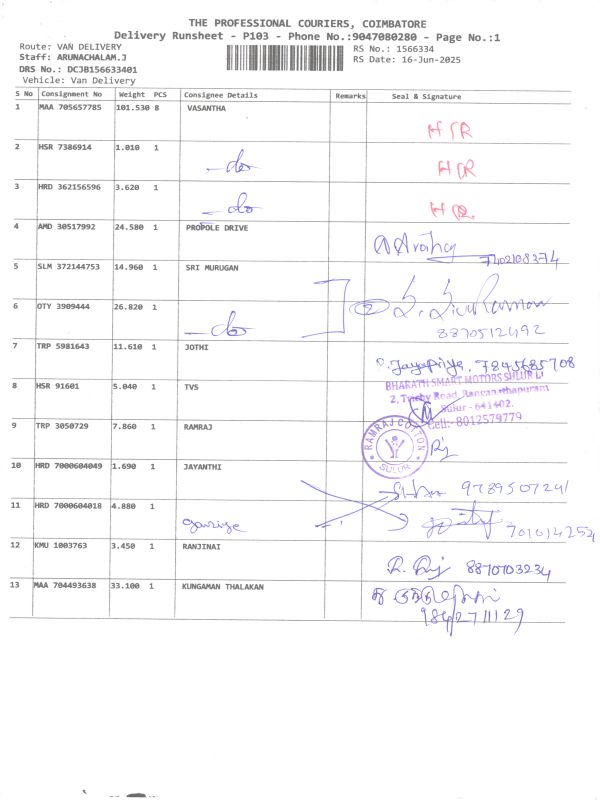 THE PROFESSIONAL COURIERS, COIMBATORE
Delivery Runsheet - P103 - Phone No.:9047080280 - Page No.:1
Route: VAN DELIVERY
RS No.: 1566334
Staff: ARUNACHALAM.J
RS Date: 16-Jun-2025
DRS No.: DCJB156633401
Vehicle: Van Delivery
S No Consignment No Weight PCS Consignee Details Remarks Seal & Signature
1 MAA 705657785 101.530 8 VASANTHA
2 HSR 7386914 1.010 1 do
3 HRD 362156596 3.620 1 do
4 AMD 30517992 24.580 1 PROPOLE DRIVE
5 SLM 372144753 14.960 1 SRI MURUGAN
6 OTY 3909444 26.820 1 do
8870512492
7 TRP 5981643 11.610 1 JOTHI
Jayapriya, 7845685708
8 HSR 91601 5.040 1 TVS
BHARATH SMART MOTORS SULUR LI
2, Trichy Road, Ranganathapuram
Sulur - 641402.
Cell:- 8012579779
9 TRP 3050729 7.860 1 RAMRAJ
RAMRAJ COTTON
SULUR
10 HRD 7000604049 1.690 1 JAYANTHI
11 HRD 7000604018 4.880 1
12 KMU 1003763 3.450 1 RANJINAI
8870703234
13 MAA 704493638 33.100 1 KUNGAMAN THALAKAN